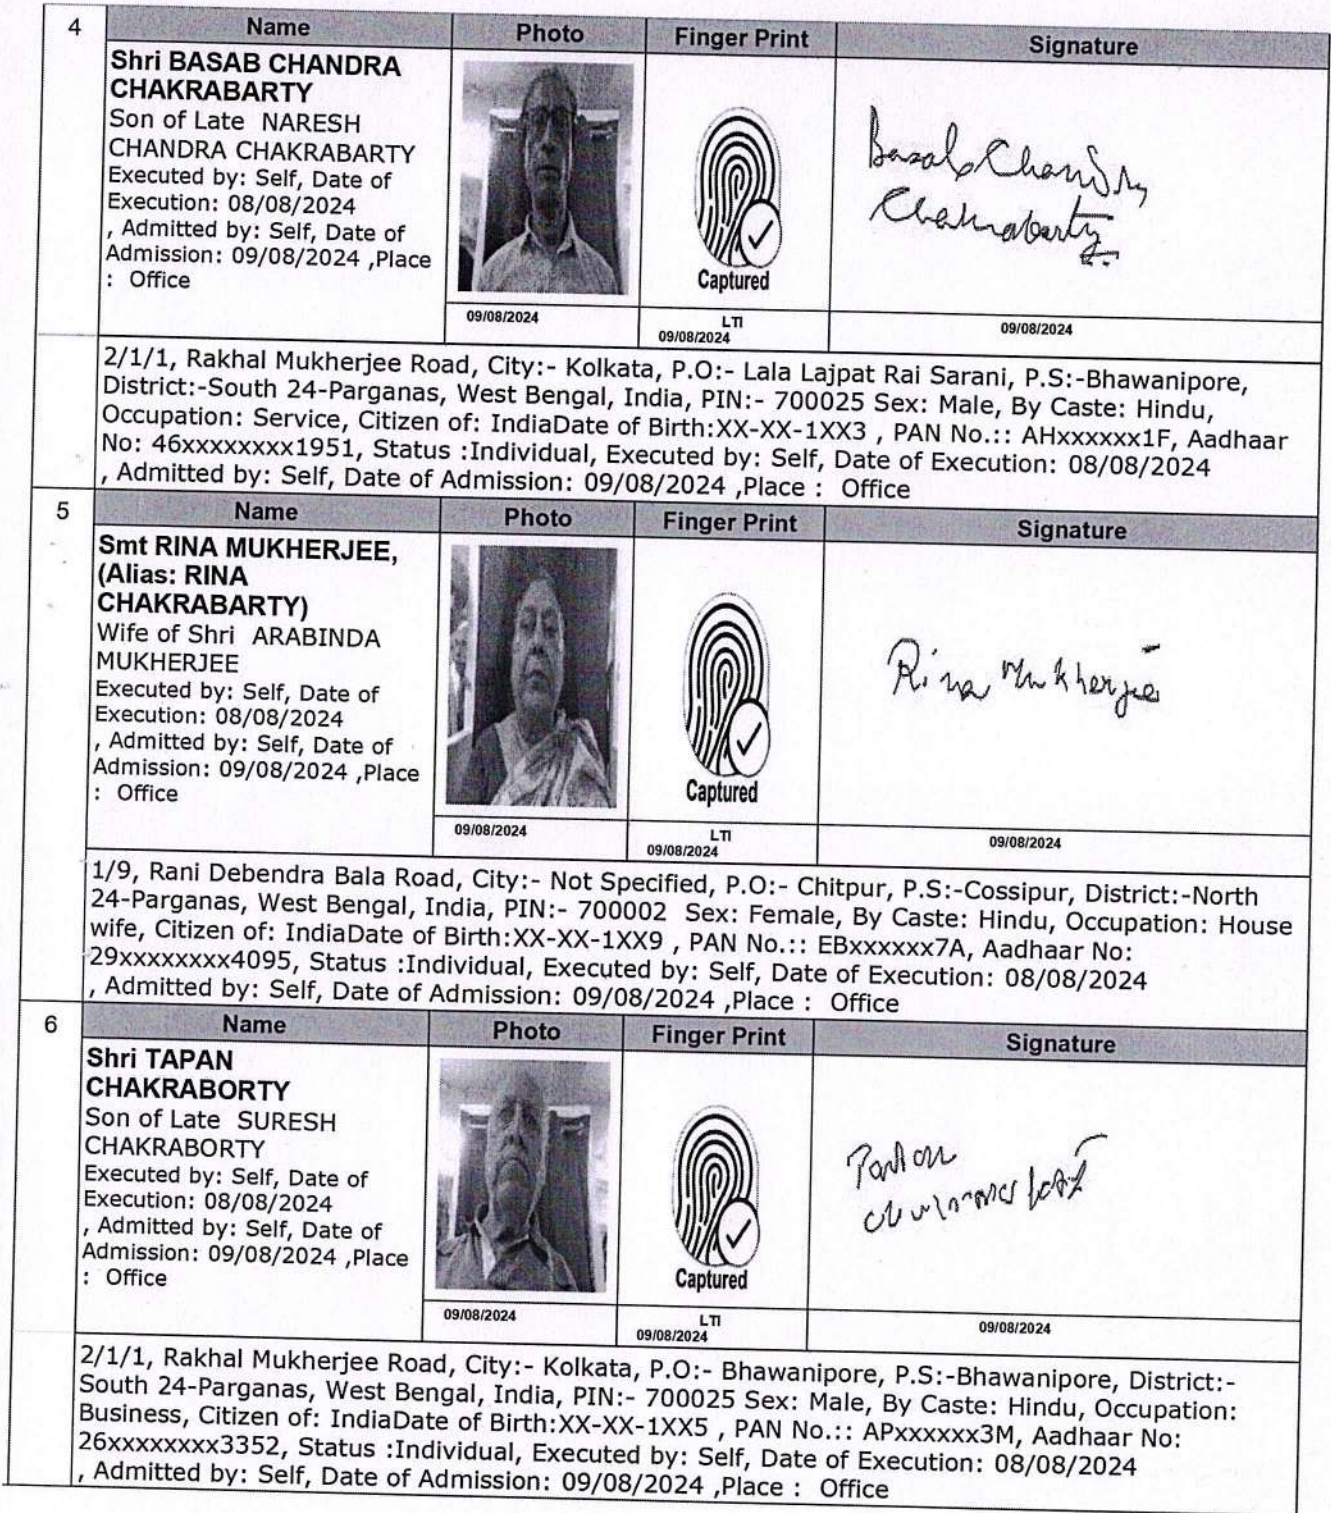 4
Name Photo Finger Print Signature
Shri BASAB CHANDRA
CHAKRABARTY
Son of Late NARESH
CHANDRA CHAKRABARTY
Executed by: Self, Date of
Execution: 08/08/2024
, Admitted by: Self, Date of
Admission: 09/08/2024 ,Place
: Office
Captured
Basab Chandra
Chakrabarty.
09/08/2024
LTI
09/08/2024
09/08/2024
2/1/1, Rakhal Mukherjee Road, City:- Kolkata, P.O:- Lala Lajpat Rai Sarani, P.S:-Bhawanipore,
District:-South 24-Parganas, West Bengal, India, PIN:- 700025 Sex: Male, By Caste: Hindu,
Occupation: Service, Citizen of: IndiaDate of Birth:XX-XX-1XX3 , PAN No.:: AHxxxxxx1F, Aadhaar
No: 46xxxxxxxx1951, Status :Individual, Executed by: Self, Date of Execution: 08/08/2024
, Admitted by: Self, Date of Admission: 09/08/2024 ,Place : Office
5
Name Photo Finger Print Signature
Smt RINA MUKHERJEE,
(Alias: RINA
CHAKRABARTY)
Wife of Shri ARABINDA
MUKHERJEE
Executed by: Self, Date of
Execution: 08/08/2024
, Admitted by: Self, Date of
Admission: 09/08/2024 ,Place
: Office
Captured
Rina Mukherjee
09/08/2024
LTI
09/08/2024
09/08/2024
1/9, Rani Debendra Bala Road, City:- Not Specified, P.O:- Chitpur, P.S:-Cossipur, District:-North
24-Parganas, West Bengal, India, PIN:- 700002 Sex: Female, By Caste: Hindu, Occupation: House
wife, Citizen of: IndiaDate of Birth:XX-XX-1XX9 , PAN No.:: EBxxxxxx7A, Aadhaar No:
29xxxxxxxx4095, Status :Individual, Executed by: Self, Date of Execution: 08/08/2024
, Admitted by: Self, Date of Admission: 09/08/2024 ,Place : Office
6
Name Photo Finger Print Signature
Shri TAPAN
CHAKRABORTY
Son of Late SURESH
CHAKRABORTY
Executed by: Self, Date of
Execution: 08/08/2024
, Admitted by: Self, Date of
Admission: 09/08/2024 ,Place
: Office
Captured
09/08/2024
LTI
09/08/2024
09/08/2024
2/1/1, Rakhal Mukherjee Road, City:- Kolkata, P.O:- Bhawanipore, P.S:-Bhawanipore, District:-
South 24-Parganas, West Bengal, India, PIN:- 700025 Sex: Male, By Caste: Hindu, Occupation:
Business, Citizen of: IndiaDate of Birth:XX-XX-1XX5 , PAN No.:: APxxxxxx3M, Aadhaar No:
26xxxxxxxx3352, Status :Individual, Executed by: Self, Date of Execution: 08/08/2024
, Admitted by: Self, Date of Admission: 09/08/2024 ,Place : Office